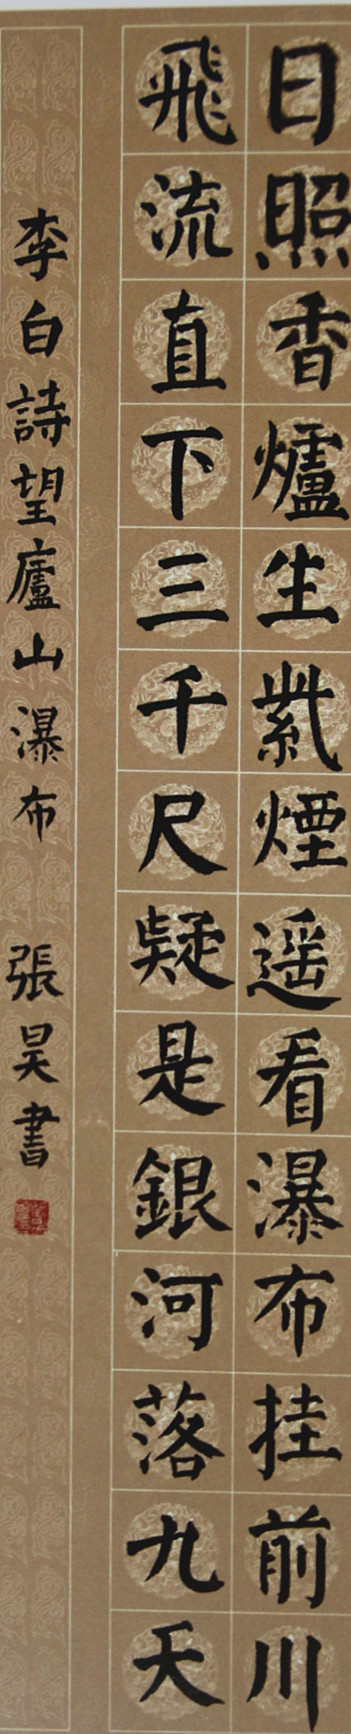 日照香爐生紫煙遥看瀑布挂前川
飛流直下三千尺疑是銀河落九天
李白詩望廬山瀑布 張昊書